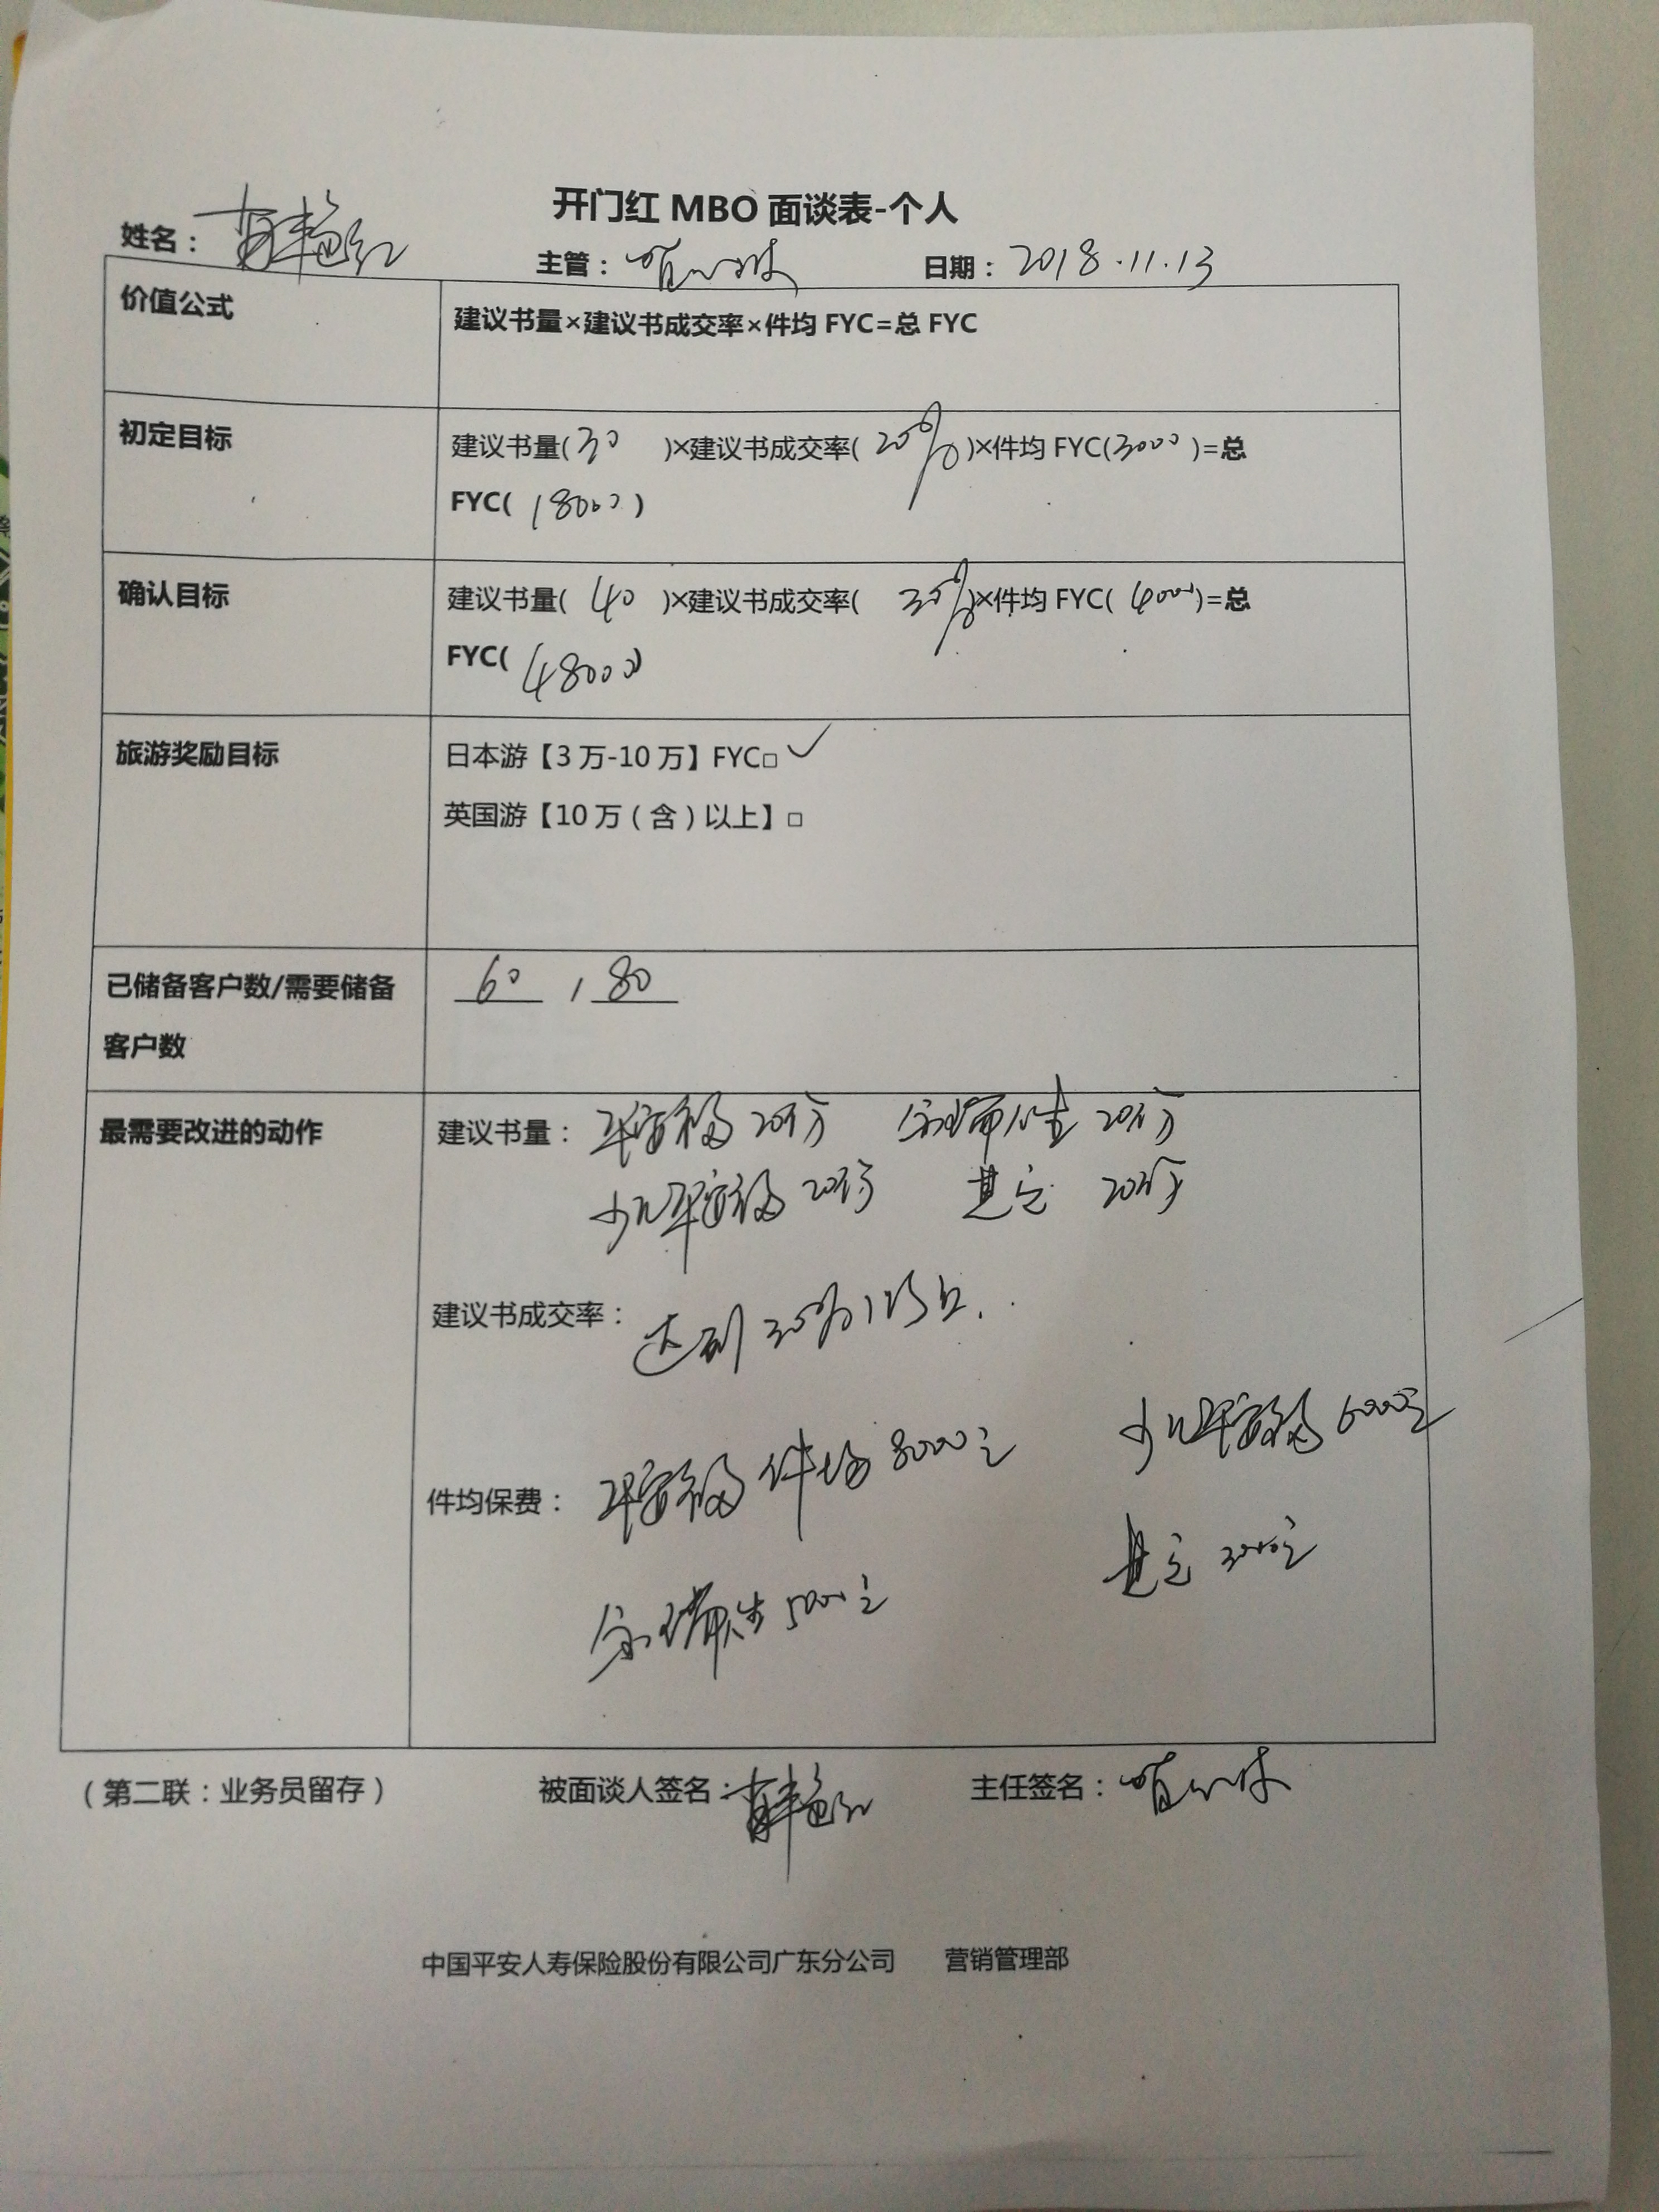 开门红 MBO 面谈表-个人
姓名： 主管： 日期：2018.11.13
价值公式 建议书量×建议书成交率×件均 FYC=总 FYC
初定目标 建议书量(30 )×建议书成交率( 20%)×件均 FYC(3000 )=总
FYC( 18000 )
确认目标 建议书量( 40 )×建议书成交率( 30%)×件均 FYC( 4000)=总
FYC( 48000)
旅游奖励目标 日本游【3 万-10 万】FYC□ ✓
英国游【10 万（含）以上】□
已储备客户数/需要储备 60 / 80
客户数
最需要改进的动作 建议书量： 平安福 20份 瑞人生 20份
少儿平安福 20份 20份
建议书成交率： 达到 30%以上.
件均保费： 平安福 件均 8000元 少儿平安福 6000元
瑞人生 5000元 3000元
（第二联：业务员留存） 被面谈人签名： 主任签名：
中国平安人寿保险股份有限公司广东分公司 营销管理部